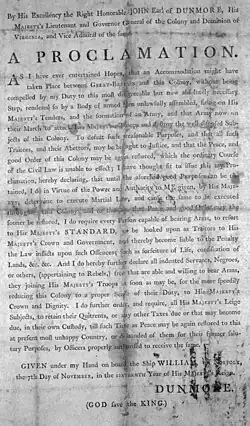 By His Excellency the Right Honorable JOHN Earl of DUNMORE, His
MAJESTY'S Lieutenant and Governor General of the Colony and Dominion of
VIRGINIA, and Vice Admiral of the same.
A PROCLAMATION.
AS I have ever entertained Hopes, that an Accommodation might have
taken Place between GREAT-BRITAIN and this Colony, without being
compelled by my Duty to this most disagreeable but now absolutely necessary
Step, rendered so by a Body of armed Men unlawfully assembled, firing on His
MAJESTY'S Tenders, and the formation of an Army, and that Army now on
their March to attack His MAJESTY'S Troops and destroy the well disposed Sub-
jects of this Colony. To defeat such treasonable Purposes, and that all such
Traitors, and their Abettors, may be brought to Justice, and that the Peace, and
good Order of this Colony may be again restored, which the ordinary Course
of the Civil Law is unable to effect; I have thought fit to issue this my Pro-
clamation, hereby declaring, that until the aforesaid good Purposes can be ob-
tained, I do in Virtue of the Power and Authority to ME given, by His MAJES-
TY, determine to execute Martial Law, and cause the same to be executed
throughout this Colony: and to the end that Peace and good Order may the
sooner be restored, I do require every Person capable of bearing Arms, to resort
to His MAJESTY'S STANDARD, or be looked upon as Traitors to His
MAJESTY'S Crown and Government, and thereby become liable to the Penalty
the Law inflicts upon such Offences; such as forfeiture of Life, confiscation of
Lands, &c. &c. And I do hereby further declare all indented Servants, Negroes,
or others, (appertaining to Rebels,) free that are able and willing to bear Arms,
they joining His MAJESTY'S Troops as soon as may be, for the more speedily
reducing this Colony to a proper Sense of their Duty, to His MAJESTY'S
Crown and Dignity. I do further order, and require, all His MAJESTY'S Leige
Subjects, to retain their Quitrents, or any other Taxes due or that may become
due, in their own Custody, till such Time as Peace may be again restored to this
at present most unhappy Country, or demanded of them for their former salu-
tary Purposes, by Officers properly authorised to receive the same.
GIVEN under my Hand on board the Ship WILLIAM, off NORFOLK,
the 7th Day of NOVEMBER, in the SIXTEENTH Year of His MAJESTY'S Reign.
DUNMORE.
(GOD save the KING.)